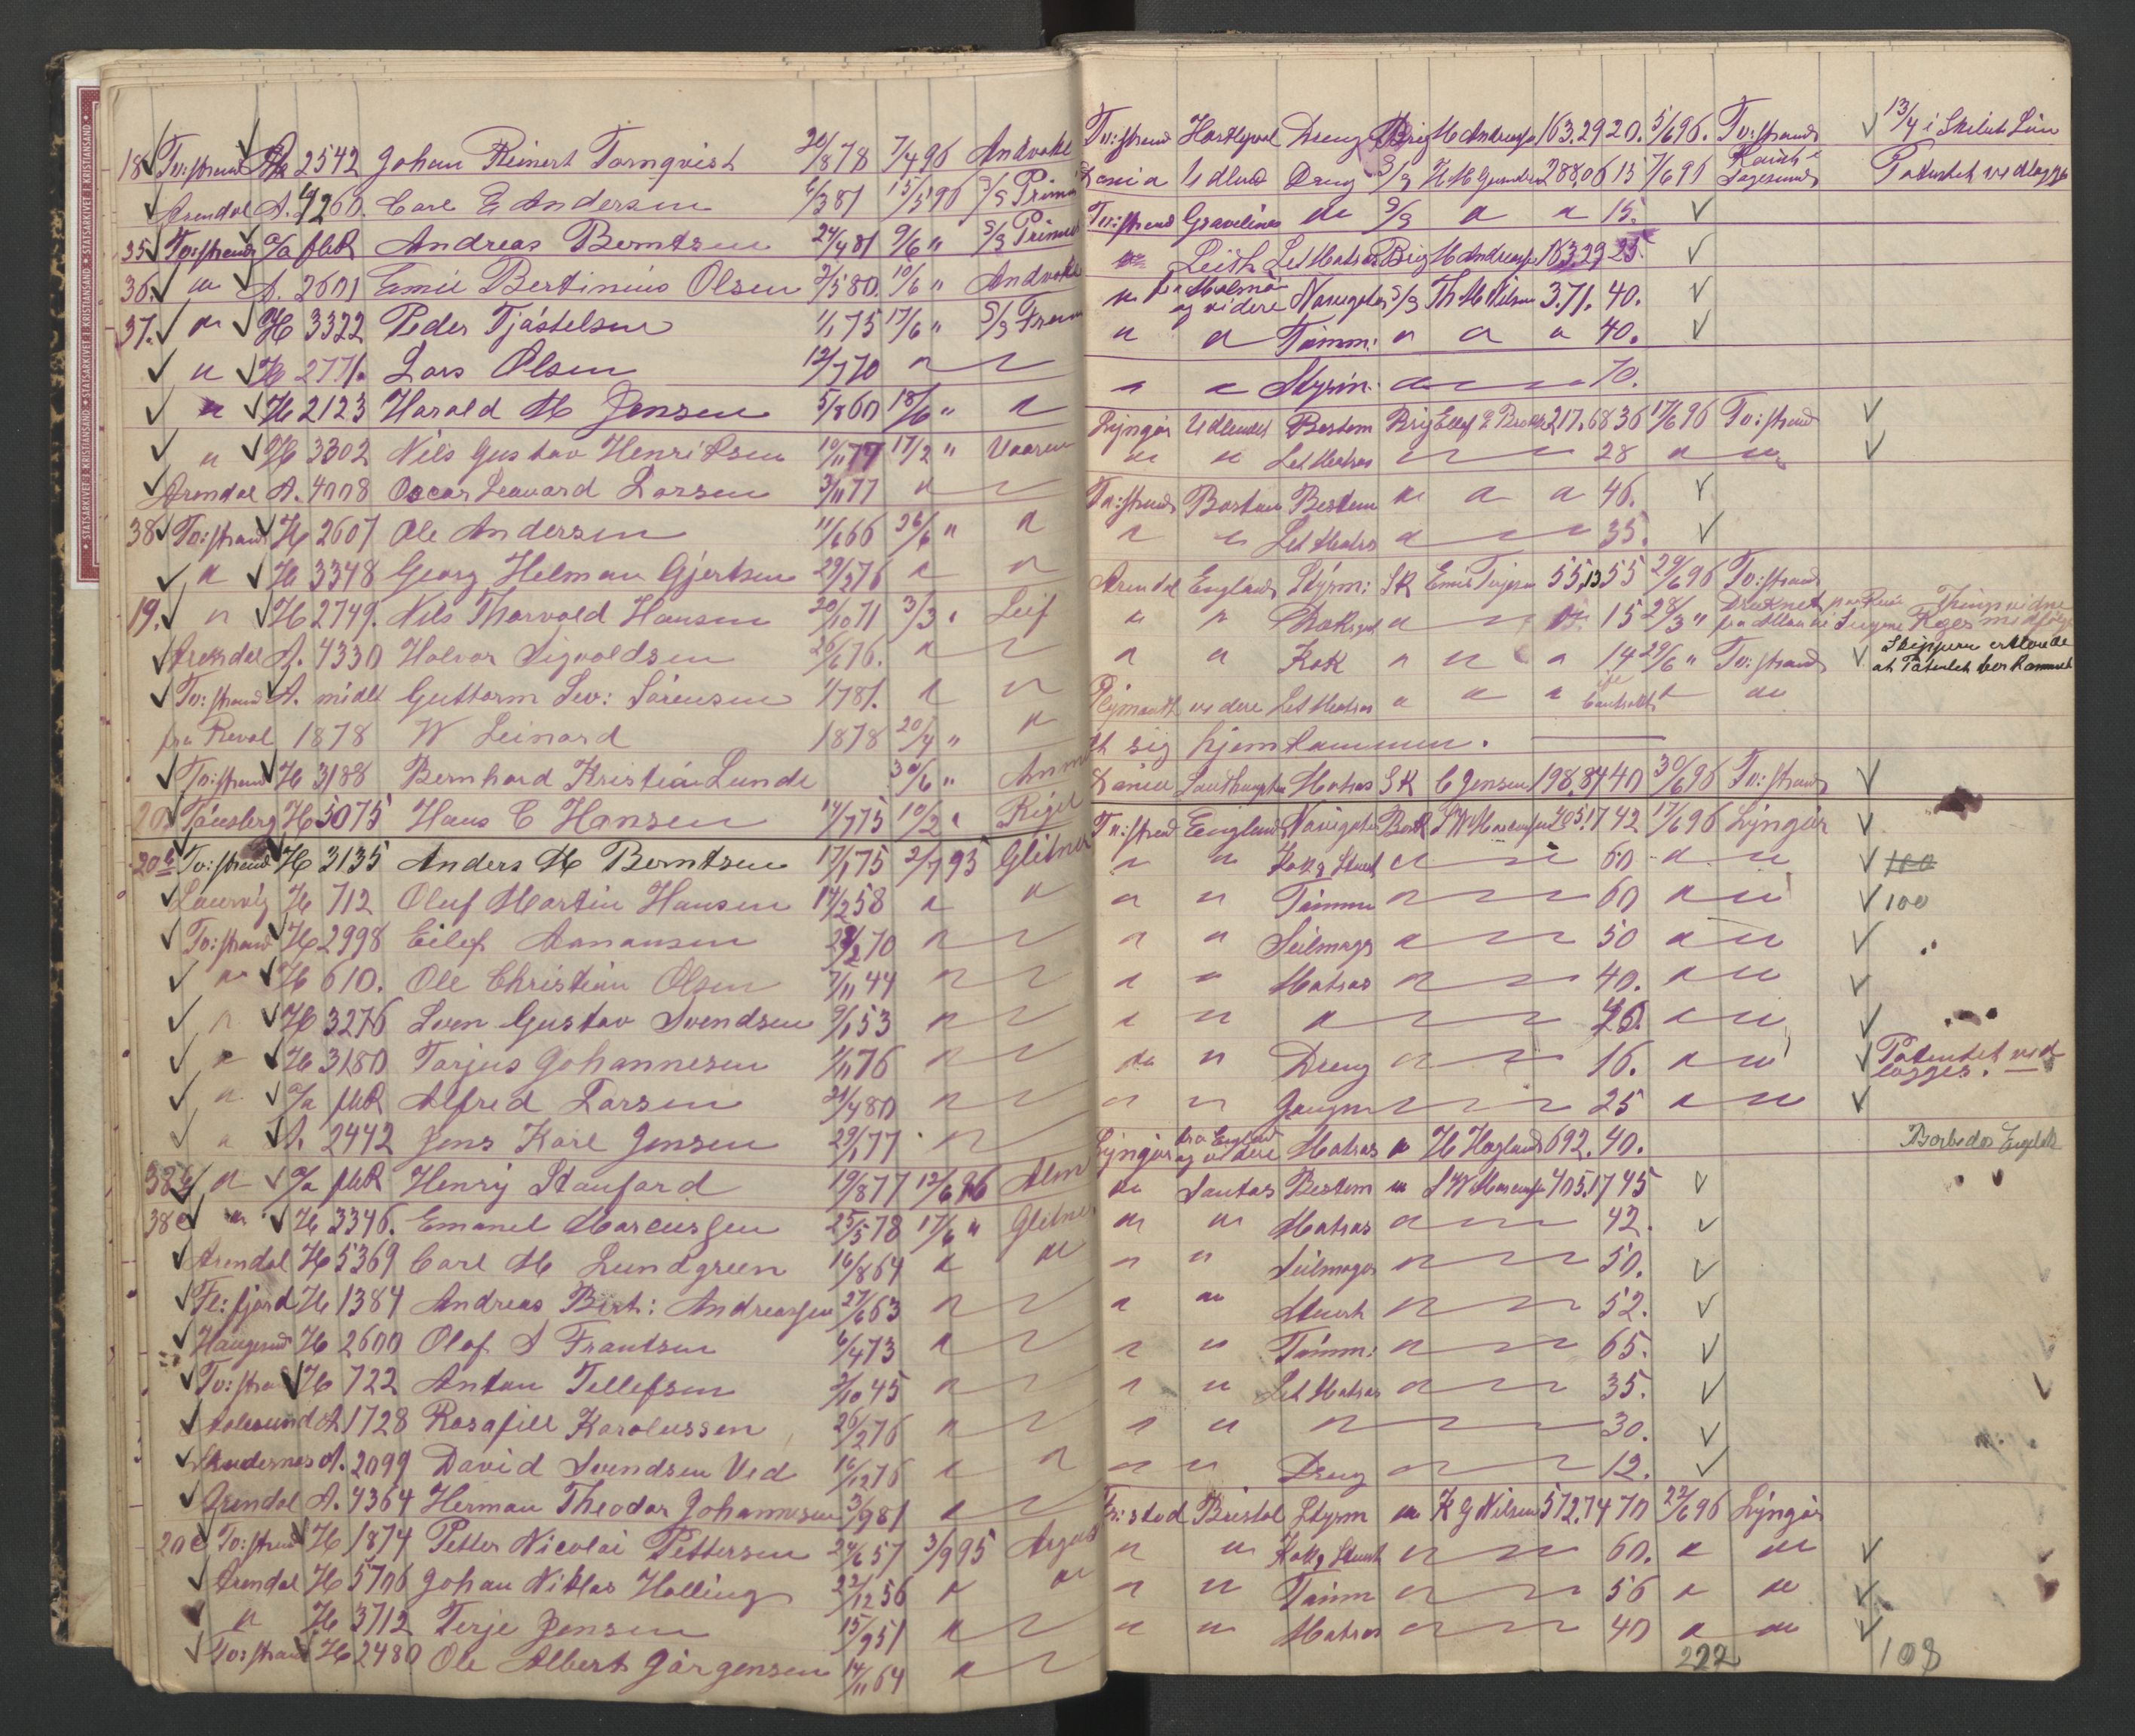 18 Tv:strand A 2542 Johan Reinert Tornqvist 20/8 78 7/4 96 Andvake
Arendal A. 4260. Carl E Andersen 6/3 81 13/5 96 S/S Primu
35 Tv:strand a/a påR Andreas Berntsen 24/4 81 9/6 " S/S Primus
36. " A. 2601 Emil Bertinius Olsen 2/5 80. 10/6 " Andvake
37. " H 3322 Peder Tjøstelsen 1/1 75 17/6 " S/S Fram
" H 2771. Lars Olsen 12/7 70 "
" H 2123 Harald M Jensen 5/8 60 18/6 " "
" H 3302 Nils Gustav Henriksen 10/11 77 17/2 " Vaaren
Arendal A. 4008 Oscar Leonard Larsen 3/11 77 "
38 Tv:strand H 2607 Ole Andersen 11/6 66 26/6 " "
" H 3348 Georg Helman Gjertsen 29/3 76 " "
19. " H 2749. Nils Thorvald Hansen 20/10 71 3/3 " Leif
Arendal A. 4330 Halvor Sigvaldsen 26/6 76. "
Tv:strand A. midlt Guttorm Sev: Sørensen 1/7 81. " "
fra Reval 1878 W Leinard 1878 20/4 " "
Tv:strand H 3188 Bernhard Kristian Lunde 30/6 "
20 Tønsberg H 5075 Hans C Hansen 14/7 75 10/2 " Rigel
20b Tv:strand H 3135 Anders M Berntsen 17/1 75 2/7 93 Glitner
Laurvig H 712 Oluf Martin Hansen 14/2 58 " "
Tv:strand H 2998 Eilef Aanansen 28/2 70 "
" H 610. Ole Christian Olsen 7/11 44 "
" H 3276 Sven Gustav Svendsen 9/1 53 "
" H 3180 Torjus Johannesen 1/1 76 "
" a/a påR Alfred Larsen 21/4 80 "
" A. 2442 Jens Karl Jensen 29/1 77 "
38b " a/a påR Henry Stanford 19/8 77 12/6 96 Alm
38c " H 3346. Emanel Marcussen 25/5 78 17/6 " Glitner
Arendal H 5369 Carl M Lundgreen 16/8 64 " "
Fl:fjord H 1384 Andreas Birt: Andreassen 27/6 63 "
Haugesund H 2600 Olaf A Frantsen 6/4 73 "
Tv:strand H 722 Anton Tellefsen 3/10 45 "
Aalesund A 1728 Rosafill Karolussen 26/2 76 "
Skudernes A. 2099 David Svendsen Ved 16/12 76 " "
Arendal A. 4364 Herman Theodor Johannesen 3/9 81 "
20c Tv:strand H 1874 Petter Nicolai Pettersen 24/6 57 3/9 95 Argus
Arendal H 5706 Johan Niklas Holling 22/12 56 " "
" H 3712 Terje Jensen 15/9 51 "
Tv:strand H 2480 Ole Albert Jørgensen 14/11 64 "
Tv:strand Hartlepool Dreng Brig M Andreasen 163.29 20. 5/6 96. Tv:strand 13/4 i
Dania Udland Dreng S/S 288,06 15 7/6 91 Patentet vedlagges
Tv:strand Gravelines " S/S " " 15.
" Leith Let Matros Brig M Andreasen 163.29 25.
" fra Malmø og videre Navigatør S/S Th M Nilsen 3.71. 40.
" " Tømm: " " " 40.
" " Styrm: " 70.
Lyngør Udlandet Bestm Brig Ellef 217.68 36 17/6 96 Tv:strand
" " Let Matros 28 " "
Tv:strand Boston Bestm " " " 46.
" " Let Matros " 35.
Arendal England Styrm: SK Emil Terjesen 55,13 55 29/6 96 Tv:strand
" " " 15 28/3 " Druknet
" " Kok " " " 14 29/6 " Tv:strand Skipperen erklærede at Patentet bortkommet
Plymouth videre Let Matros " " " "
sig hjemkommen.
Dania Southampton Matros SK C Jensen 198,87 40 30/6 96 Tv:strand
Tv:strand England Navigatør Bark S W Marcussen 405.17 42 17/6 96 Lyngør
" " Kok & Stuert " 60 " " 100
" " Tømm 60 " " 100
" " Seilmager " 50 " "
" " Matros 40. " "
" " " " "
" " Dreng 16. " " Patentet ved lægges.
" " Jungm 25 " "
Lyngør fra England og videre Matros " H Hagland 692. 40. Barbados England
" Santos Bestm " S W Marcussen 405.17 45
" " Matros 42.
" " Seilmager 50.
" " Stuert 52.
" " Tømm: 65.
" " Let Matros 35.
" " " 30.
" " Dreng 12.
Fr:stad Bristol Styrm " K G Nilsen 572.74 70 22/6 96 Lyngør
" " Kok & Stuert 60. " "
" " Tømm 56 " "
" " Matros 40 " "
222 108
STATSARKIVET I KRISTIANSAND